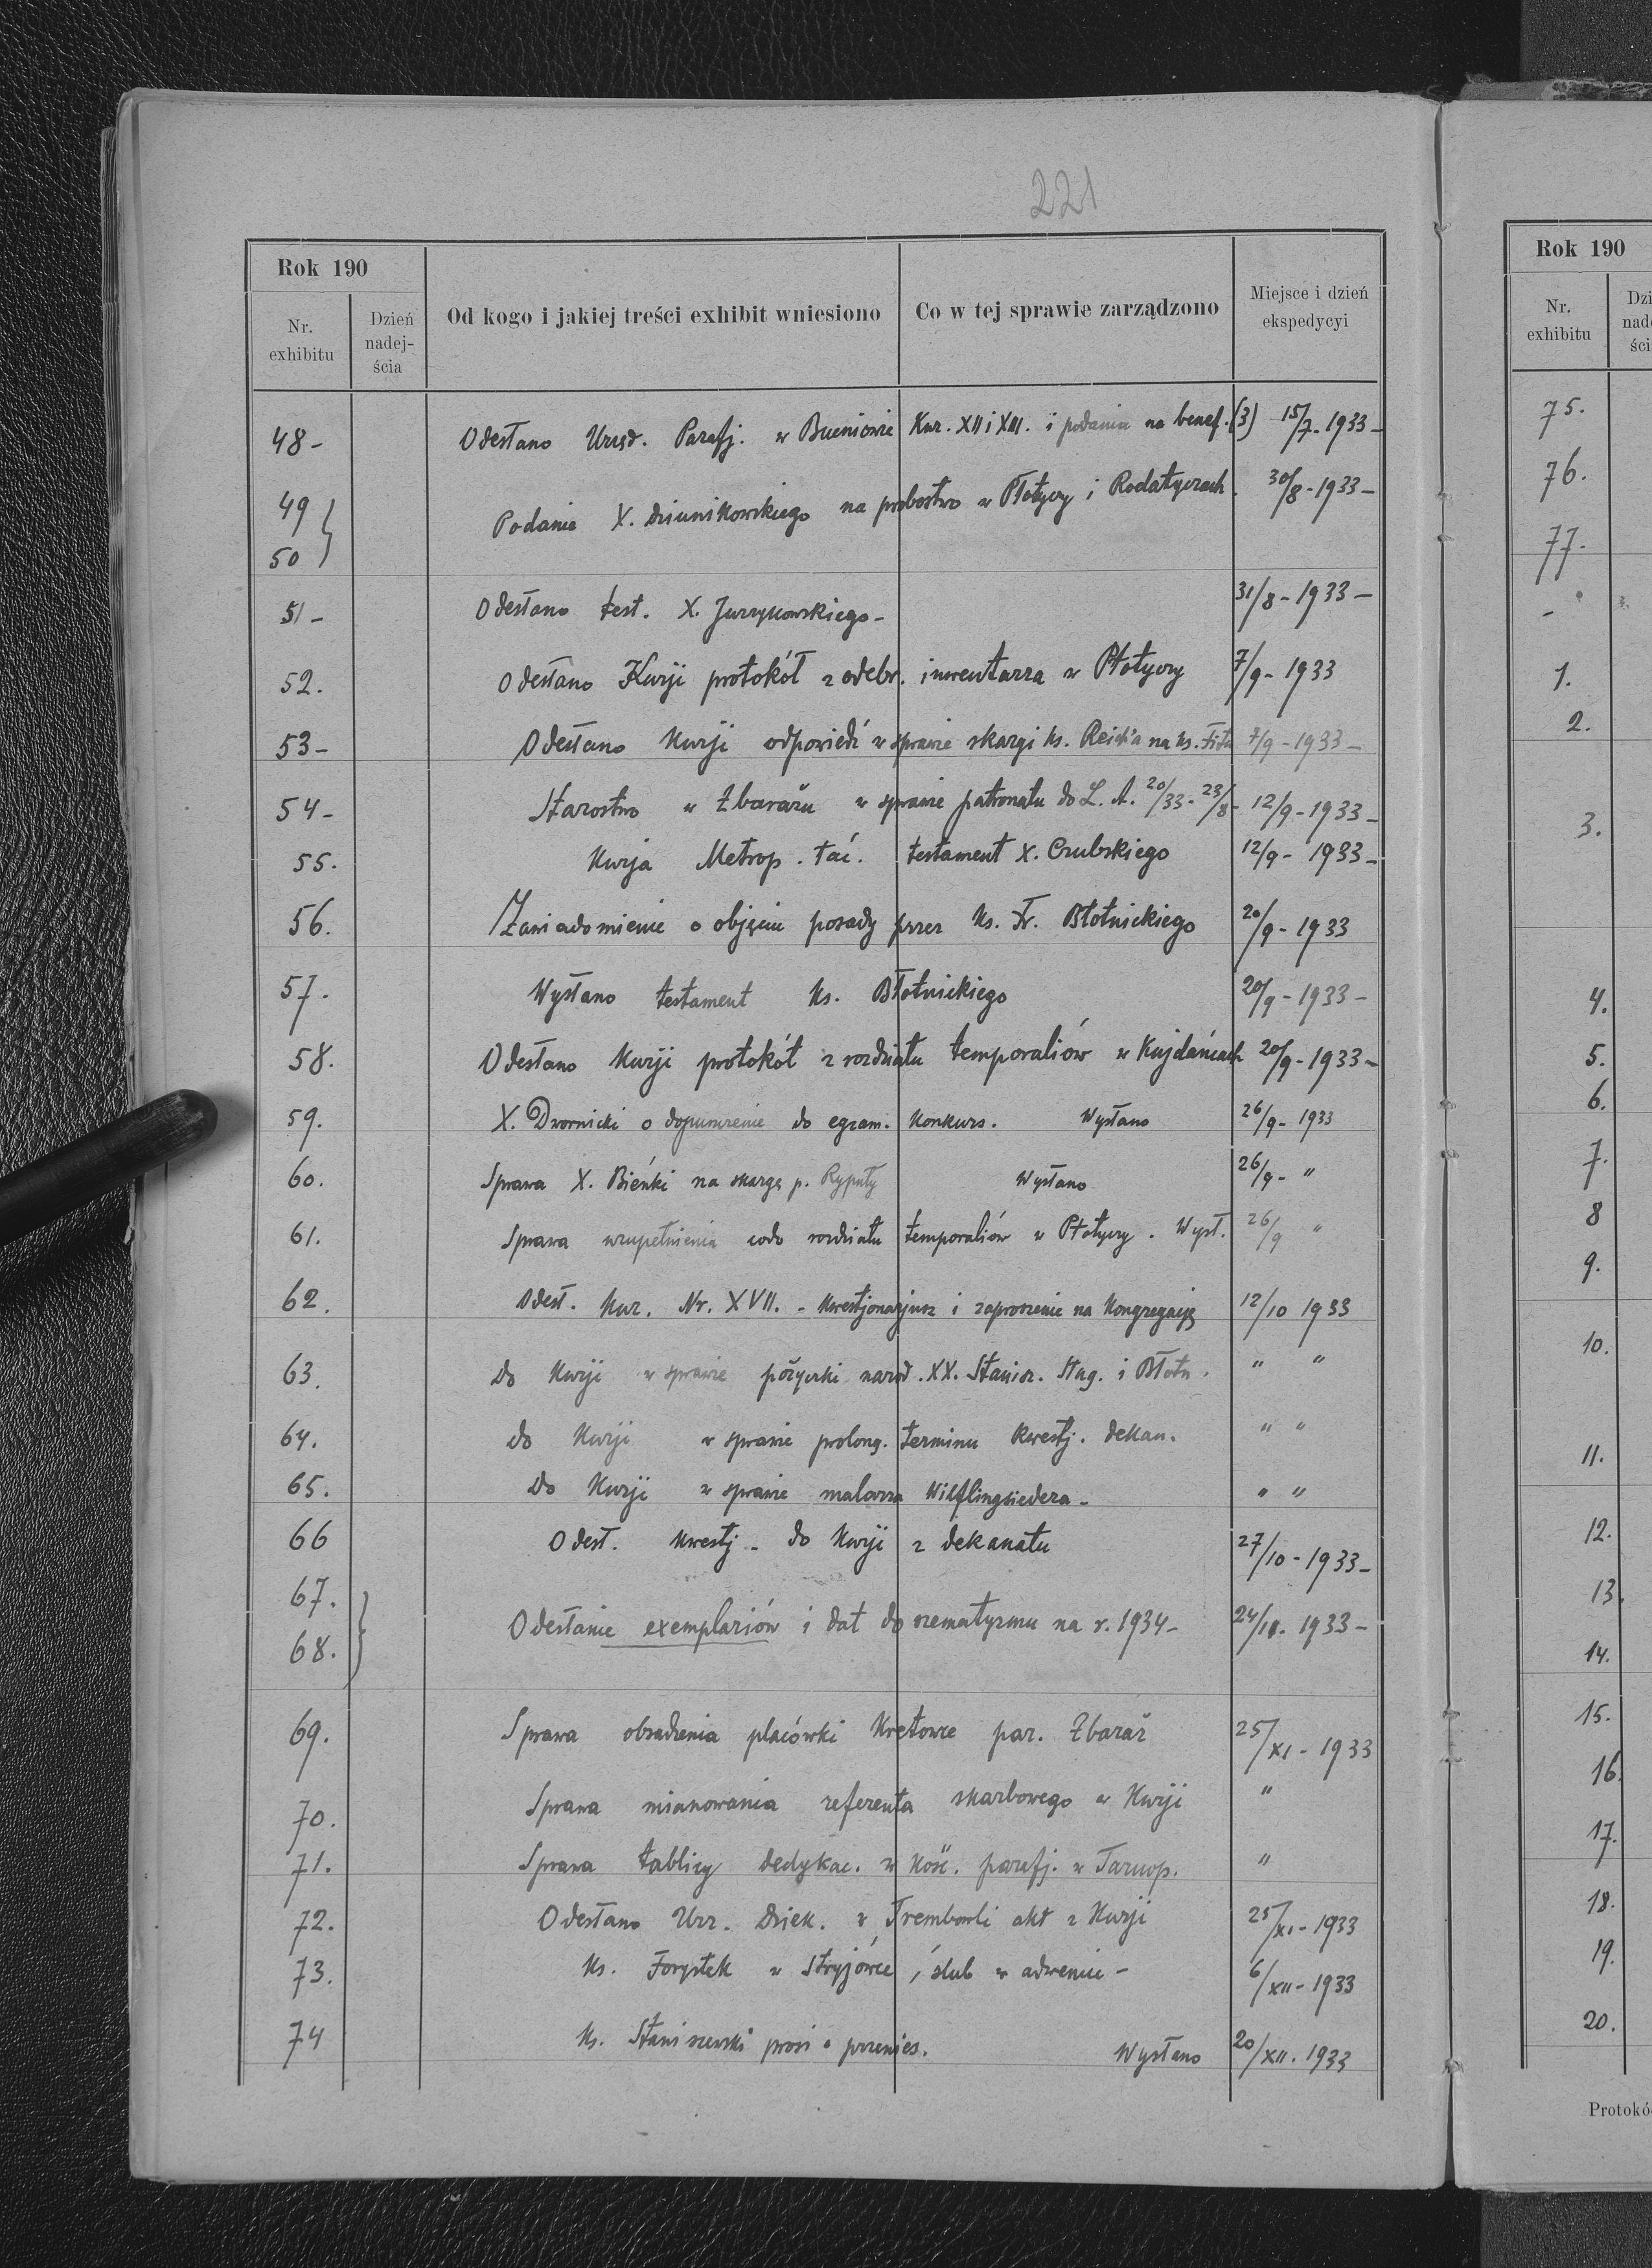 221
Rok 190
Nr. exhibitu
Dzień nadej- ścia
Od kogo i jakiej treści exhibit wniesiono
Co w tej sprawie zarządzono
Miejsce i dzień ekspedycyi
48- Odesłano Urzęd. Parafj. w Bucniowie Kur. XII i XIII. i podania na benef. (3) 15/7-1933-
49
50 } Podanie X. Dziunikowskiego na probostwo w Płotyczy i Rodatyczach. 30/8-1933-
51- Odesłano test. X. Jurzykowskiego- 31/8-1933-
52. Odesłano Kurji protokół z odebr. inwentarza w Płotyczy 7/9-1933
53- Odesłano Kurji odpowiedź w sprawie skargi ks. Reich'a na ks. 7/9-1933-
54- Starostwo w Zbarażu w sprawie patronatu do L. A. 20/33-23/8- 12/9-1933-
55. Kurja Metrop. łać. testament X. Czubskiego 12/9-1933-
56. Zawiadomienie o objęciu posady przez ks. Fr. Błotnickiego 20/9-1933
57. Wysłano testament ks. Błotnickiego 20/9-1933-
58. Odesłano Kurji protokół z rozdziału temporaliów w Kujdańcach 20/9-1933-
59. X. Dwornicki o dopuszczenie do egzam. konkurs. Wysłano 26/9-1933
60. Sprawa X. Bieńki na skargę p. Rypuły Wysłano 26/9- "
61. Sprawa uzupełnienia codo rozdziału temporaliów w Płotyczy. Wysł. 26/9 "
62. Odesł. Kur. Nr. XVII. - Kwestjonarjusz i zaproszenie na Kongregację 12/10 1933
63. Do Kurji w sprawie pożyczki narod. XX. Stanisz. Stug. i Błotn. " "
64. do Kurji w sprawie prolong. terminu kwestj. dekan. " "
65. Do Kurji w sprawie malarza Wilflingsiedera- " "
66 Odesł. Kwestj. do Kurji z dekanatu 27/10-1933-
67.
68. } Odesłanie exemplariów i dat do szematyzmu na r. 1934- 24/11. 1933-
69. Sprawa obsadzenia placówki Kretowce par. Zbaraż 25/XI-1933
70. Sprawa mianowania referenta skarbowego w Kurji "
71. Sprawa tablicy dedykac. w kość. parafj. w Tarnop. "
72. Odesłano Urz. Dziek. w Trembowli akt z Kurji 25/XI-1933
73. Ks. Forystek w Stryjówce, ślub w adwencie- 6/XII-1933
74 Ks. Staniszewski prosi o przenies. Wysłano 20/XII. 1933
Rok 190
Nr. exhibitu
75.
76.
77.
-
1.
2.
3.
4.
5.
6.
7.
8
9.
10.
11.
12.
13.
14.
15.
16.
17.
18.
19.
20.